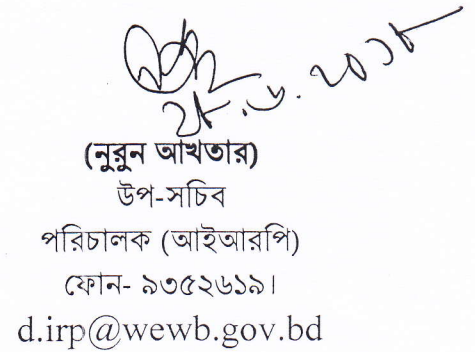 ২৮.৬.২০১৮
(নুরুন আখতার)
উপ-সচিব
পরিচালক (আইআরপি)
ফোন- ৯৩৫২৬১৯।
d.irp@wewb.gov.bd